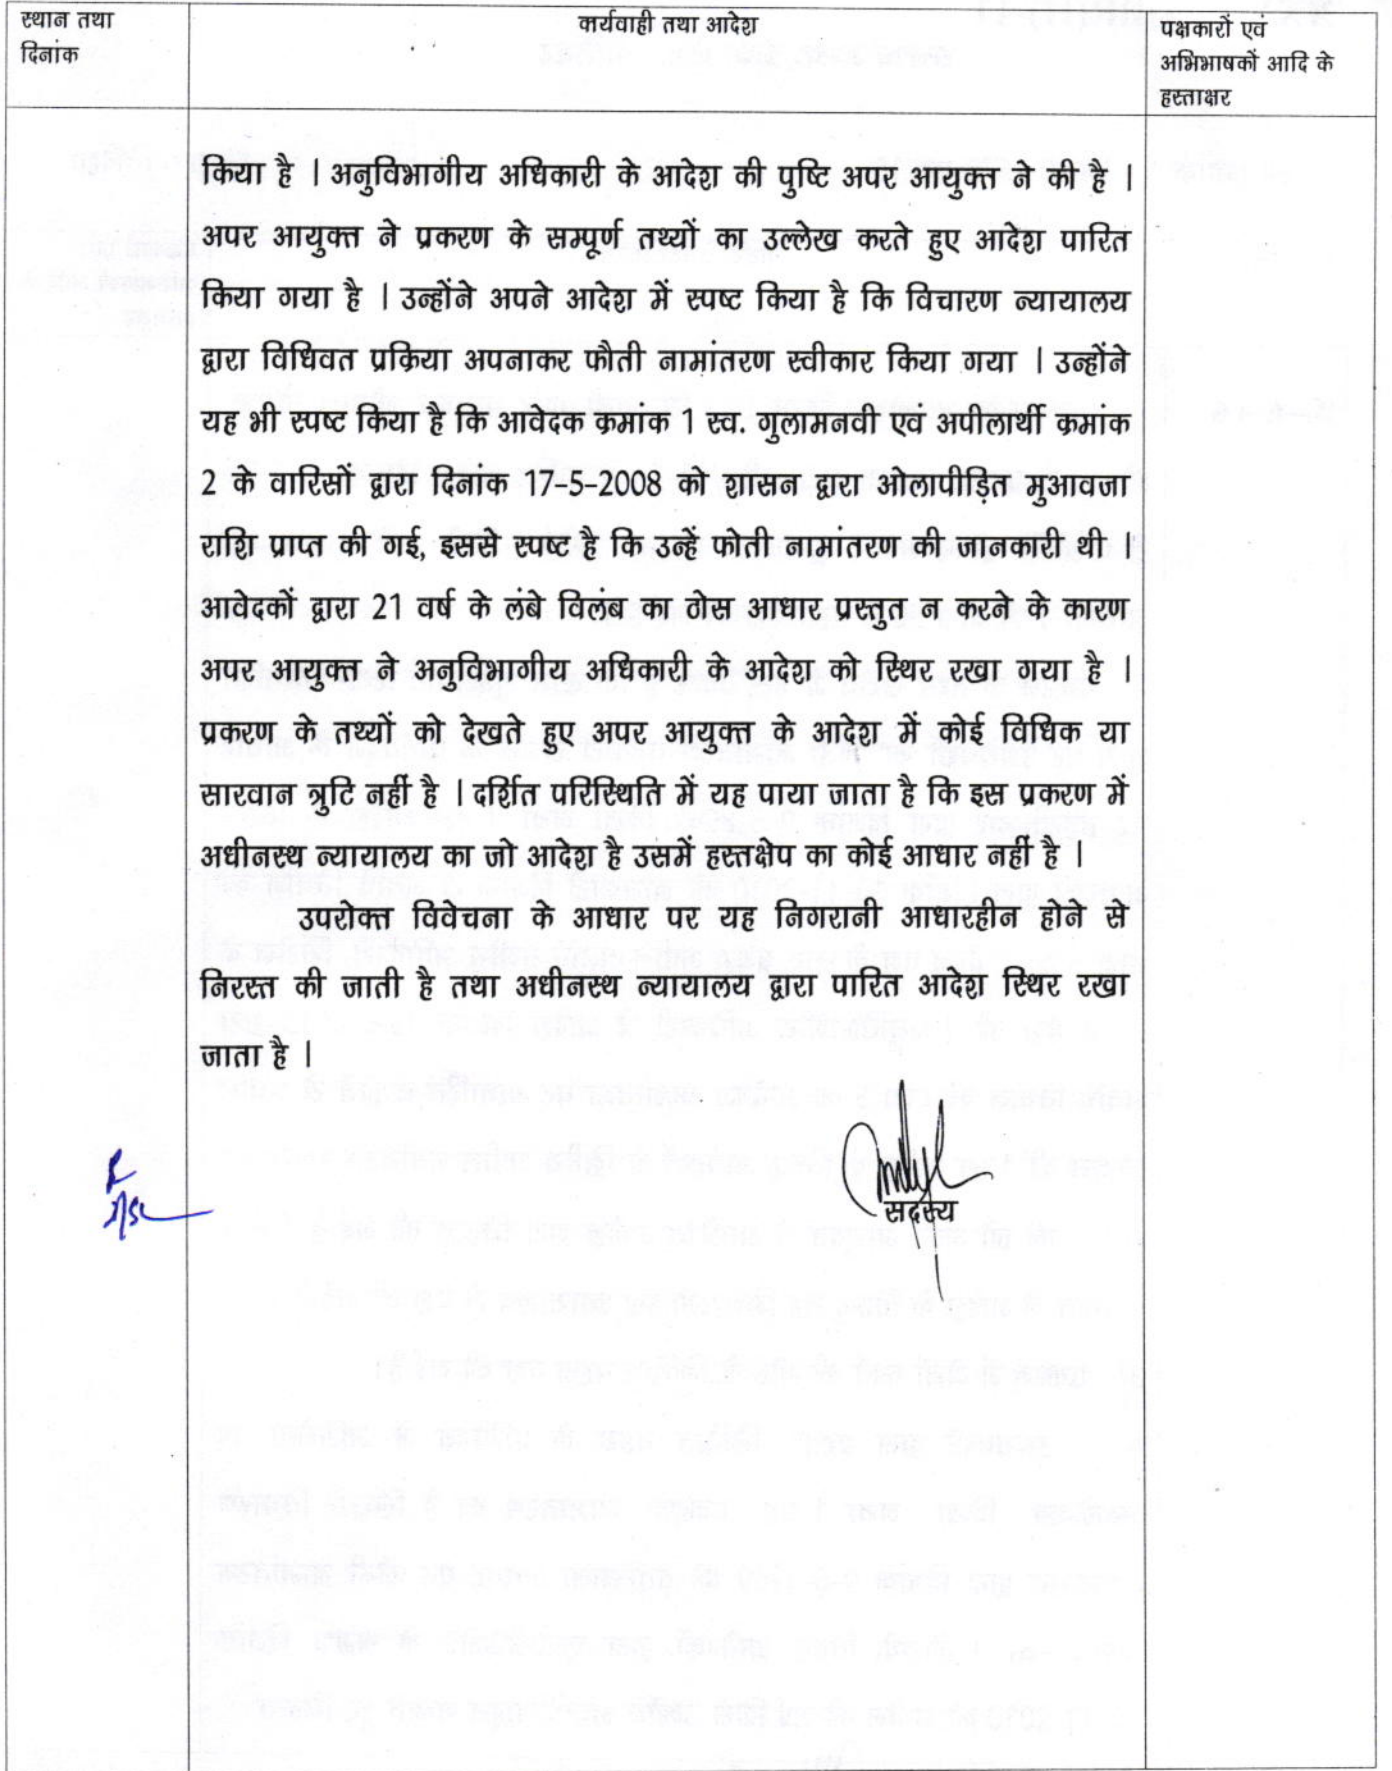 स्थान तथा
दिनांक
कार्यवाही तथा आदेश
पक्षकारों एवं
अभिभाषकों आदि के
हस्ताक्षर
किया है । अनुविभागीय अधिकारी के आदेश की पुष्टि अपर आयुक्त ने की है ।
अपर आयुक्त ने प्रकरण के सम्पूर्ण तथ्यों का उल्लेख करते हुए आदेश पारित
किया गया है । उन्होंने अपने आदेश में स्पष्ट किया है कि विचारण न्यायालय
द्वारा विधिवत प्रक्रिया अपनाकर फौती नामांतरण स्वीकार किया गया । उन्होंने
यह भी स्पष्ट किया है कि आवेदक क्रमांक 1 स्व. गुलामनवी एवं अपीलार्थी क्रमांक
2 के वारिसों द्वारा दिनांक 17-5-2008 को शासन द्वारा ओलापीड़ित मुआवजा
राशि प्राप्त की गई, इससे स्पष्ट है कि उन्हें फोती नामांतरण की जानकारी थी ।
आवेदकों द्वारा 21 वर्ष के लंबे विलंब का ठोस आधार प्रस्तुत न करने के कारण
अपर आयुक्त ने अनुविभागीय अधिकारी के आदेश को स्थिर रखा गया है ।
प्रकरण के तथ्यों को देखते हुए अपर आयुक्त के आदेश में कोई विधिक या
सारवान त्रुटि नहीं है । दर्शित परिस्थिति में यह पाया जाता है कि इस प्रकरण में
अधीनस्थ न्यायालय का जो आदेश है उसमें हस्तक्षेप का कोई आधार नहीं है ।
उपरोक्त विवेचना के आधार पर यह निगरानी आधारहीन होने से
निरस्त की जाती है तथा अधीनस्थ न्यायालय द्वारा पारित आदेश स्थिर रखा
जाता है ।
सदस्य